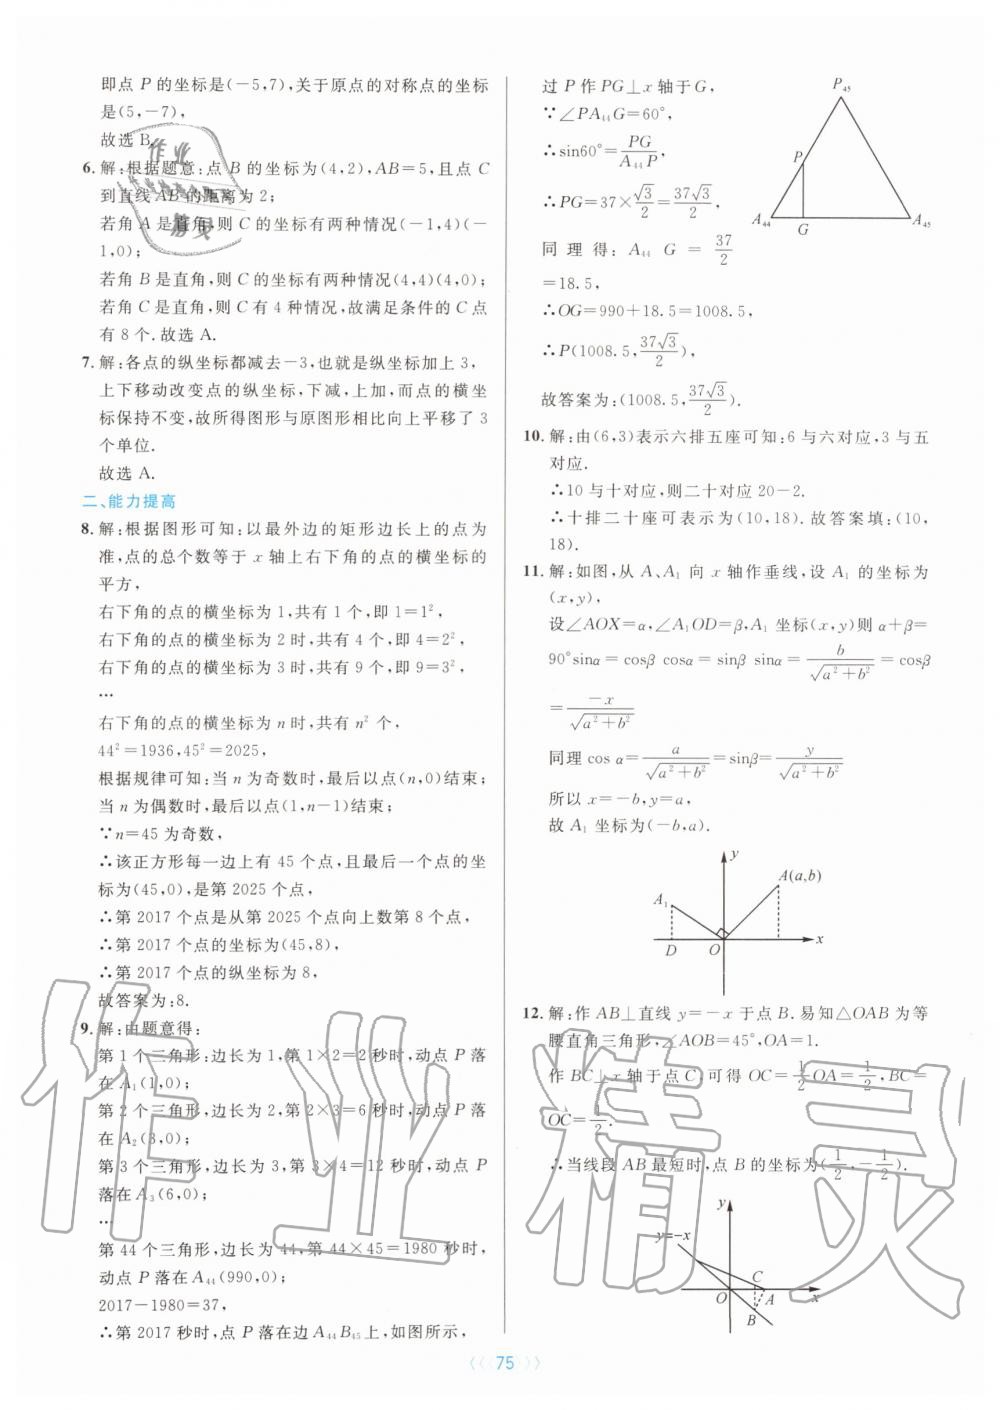 即点 P 的坐标是(-5,7),关于原点的对称点的坐标
是(5,-7),
故选 B.
6. 解:根据题意:点 B 的坐标为(4,2),AB=5,且点 C
到直线 AB 的距离为 2;
若角 A 是直角,则 C 的坐标有两种情况(-1,4)(-
1,0);
若角 B 是直角,则 C 的坐标有两种情况(4,4)(4,0);
若角 C 是直角,则 C 有 4 种情况,故满足条件的 C 点
有 8 个.故选 A.
7. 解:各点的纵坐标都减去-3,也就是纵坐标加上 3,
上下移动改变点的纵坐标,下减,上加,而点的横坐
标保持不变,故所得图形与原图形相比向上平移了 3
个单位.
故选 A.
二、能力提高
8. 解:根据图形可知:以最外边的矩形边长上的点为
准,点的总个数等于 x 轴上右下角的点的横坐标的
平方,
右下角的点的横坐标为 1,共有 1 个,即 1=1²,
右下角的点的横坐标为 2 时,共有 4 个,即 4=2²,
右下角的点的横坐标为 3 时,共有 9 个,即 9=3²,
…
右下角的点的横坐标为 n 时,共有 n² 个,
44²=1936,45²=2025,
根据规律可知:当 n 为奇数时,最后以点(n,0)结束;
当 n 为偶数时,最后以点(1,n-1)结束;
∵n=45 为奇数,
∴该正方形每一边上有 45 个点,且最后一个点的坐
标为(45,0),是第 2025 个点,
∴第 2017 个点是从第 2025 个点向上数第 8 个点,
∴第 2017 个点的坐标为(45,8),
∴第 2017 个点的纵坐标为 8,
故答案为:8.
9. 解:由题意得:
第 1 个三角形:边长为 1,第 1×2=2 秒时,动点 P 落
在 A₁(1,0);
第 2 个三角形,边长为 2,第 2×3=6 秒时,动点 P 落
在 A₂(3,0);
第 3 个三角形,边长为 3,第 3×4=12 秒时,动点 P
落在 A₃(6,0);
…
第 44 个三角形,边长为 44,第 44×45=1980 秒时,
动点 P 落在 A₄₄(990,0);
2017-1980=37,
∴第 2017 秒时,点 P 落在边 A₄₄B₄₅ 上,如图所示,
过 P 作 PG⊥x 轴于 G,
∵∠PA₄₄G=60°,
∴sin60°=PG/A₄₄P,
∴PG=37×√3/2=37√3/2,
同理得:A₄₄G=37/2
=18.5,
∴OG=990+18.5=1008.5,
∴P(1008.5,37√3/2),
故答案为:(1008.5,37√3/2).
P₄₅
P
A₄₄
G
A₄₅
10. 解:由(6,3)表示六排五座可知:6 与六对应,3 与五
对应.
∴10 与十对应,则二十对应 20-2.
∴十排二十座可表示为(10,18).故答案填:(10,
18).
11. 解:如图,从 A、A₁ 向 x 轴作垂线,设 A₁ 的坐标为
(x,y),
设∠AOX=α,∠A₁OD=β,A₁ 坐标(x,y)则 α+β=
90°sinα=cosβ cosα=sinβ sinα=b/√(a²+b²)=cosβ
=-x/√(a²+b²)
同理 cos α=a/√(a²+b²)=sinβ=y/√(a²+b²)
所以 x=-b,y=a,
故 A₁ 坐标为(-b,a).
y
A(a,b)
A₁
D
O
x
12. 解:作 AB⊥直线 y=-x 于点 B.易知△OAB 为等
腰直角三角形,∠AOB=45°,OA=1.
作 BC⊥x 轴于点 C,可得 OC=1/2OA=1/2,BC=
OC=1/2.
∴当线段 AB 最短时,点 B 的坐标为(1/2,-1/2).
y
y=-x
C
O
A
x
B
75
作业精灵